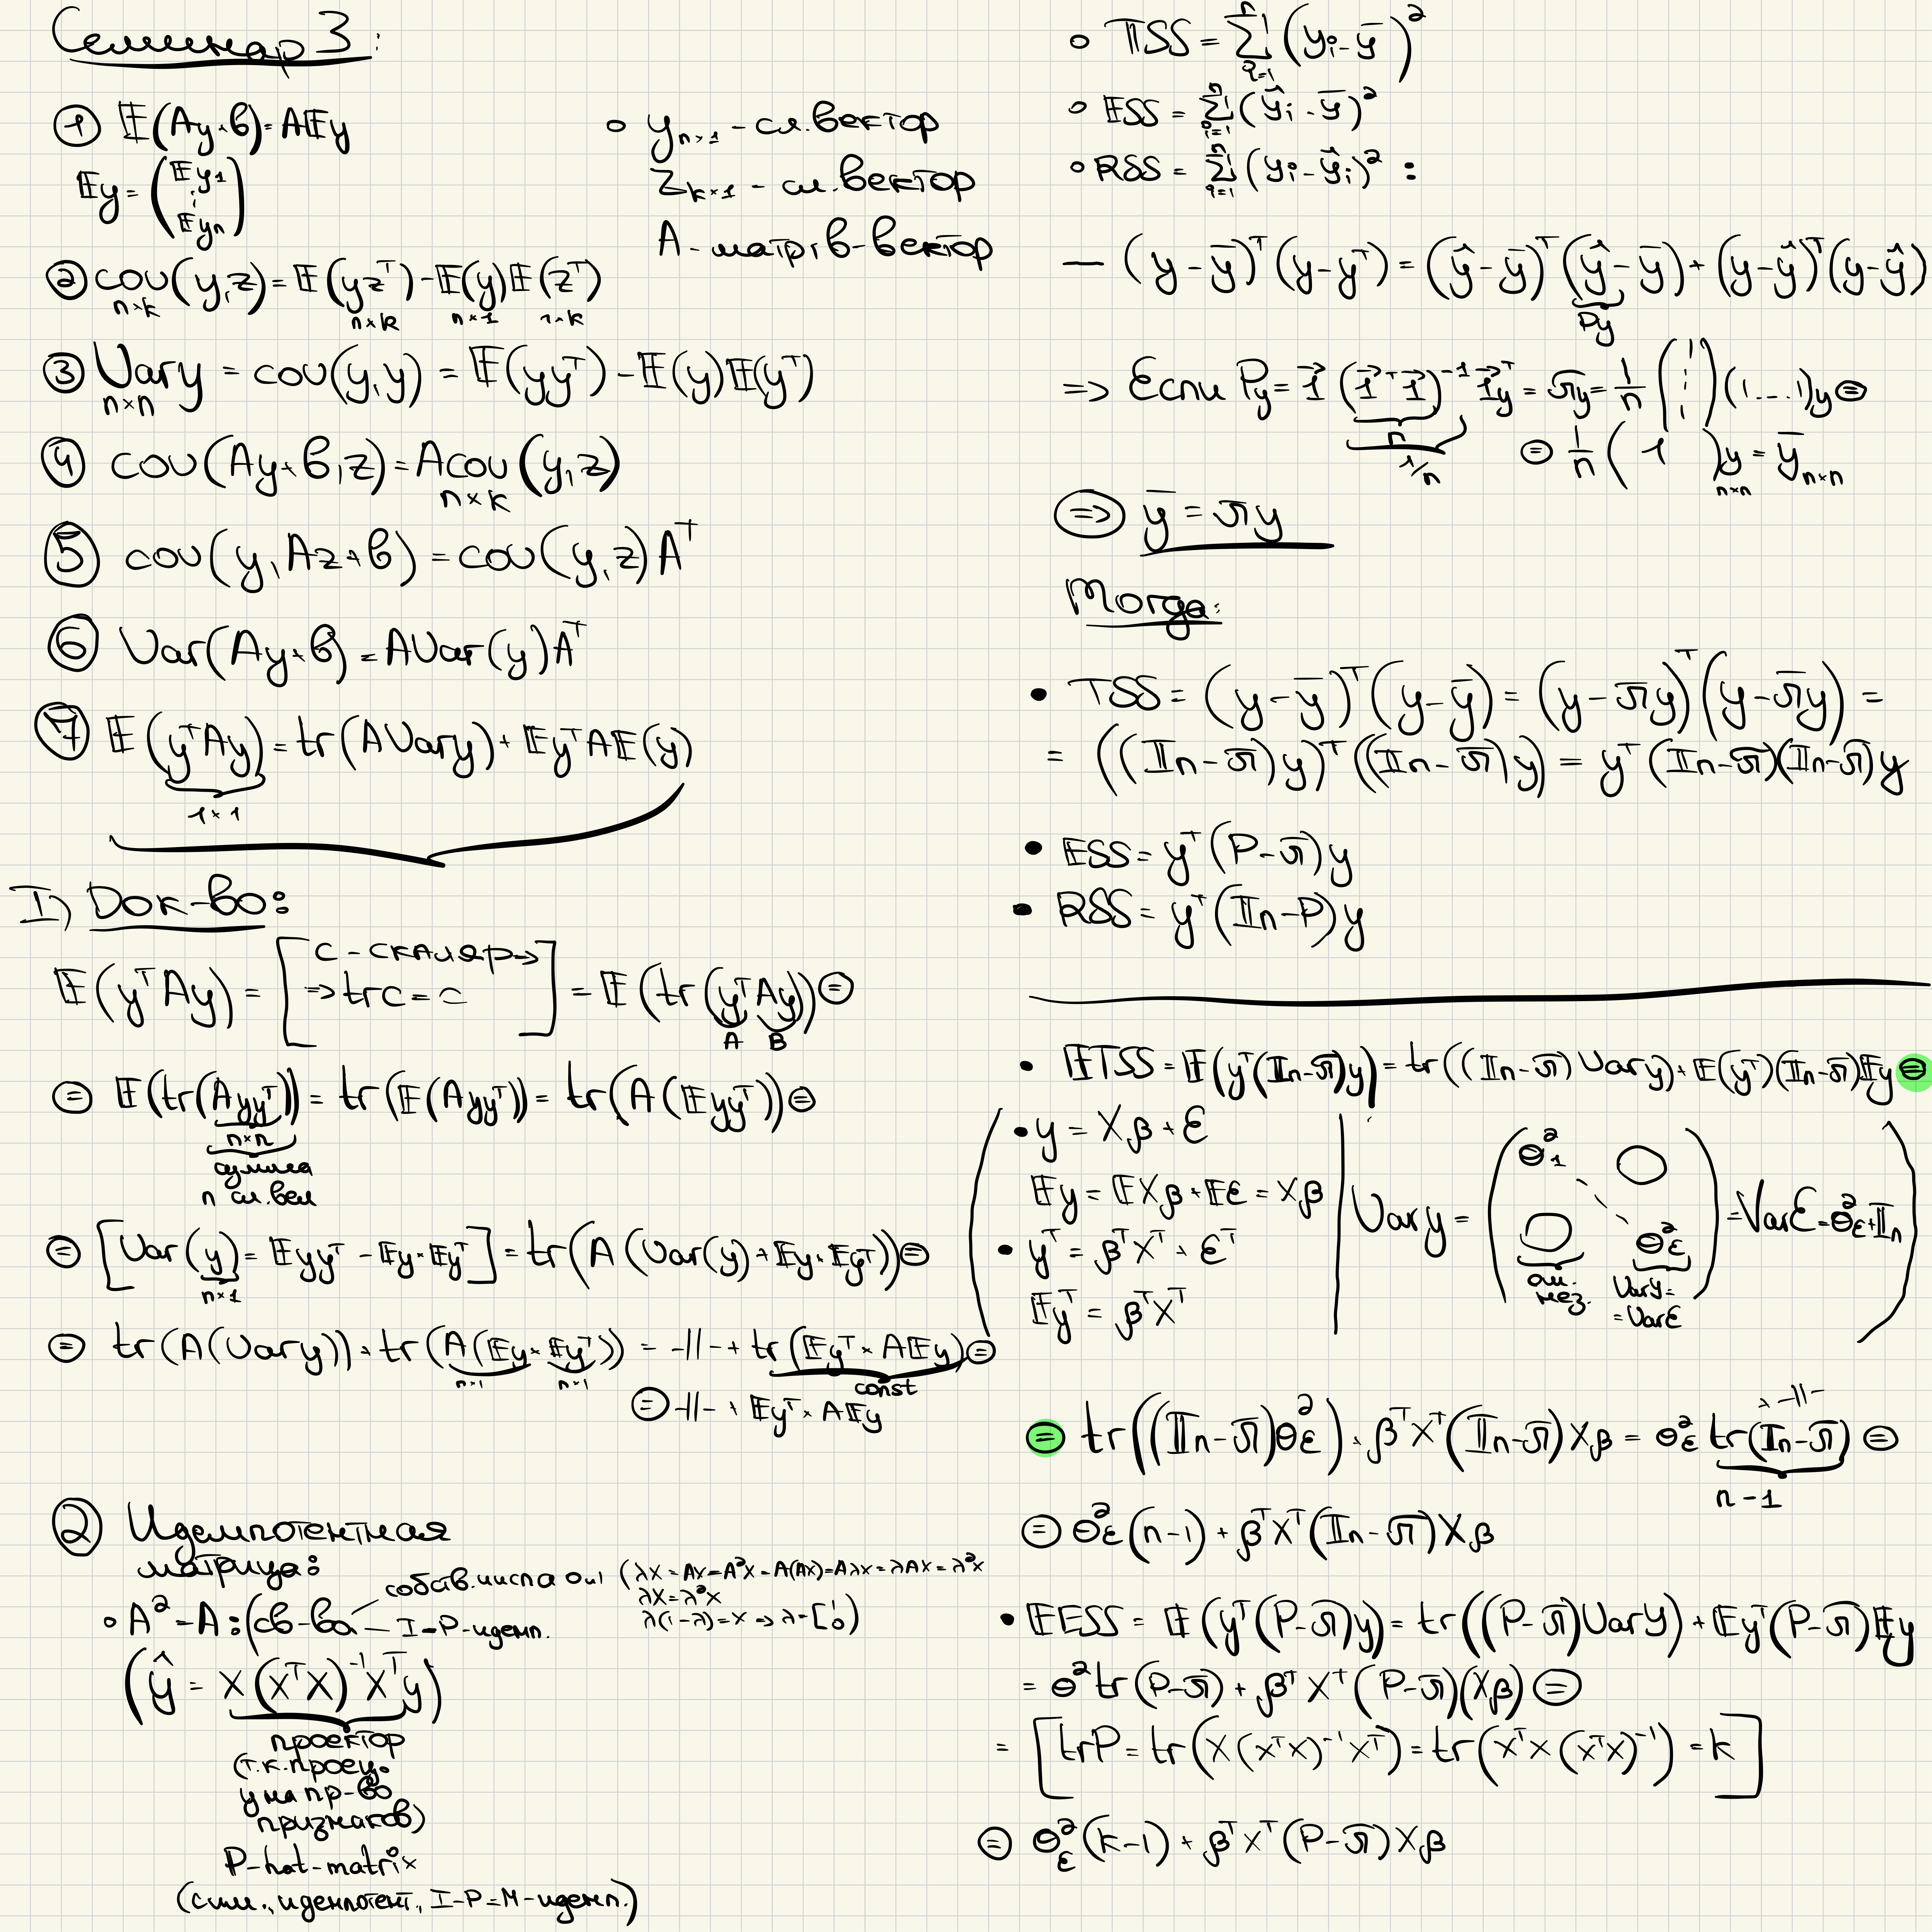 Семинар 3:
① 𝔼(Ay+b)=A𝔼y
𝔼y = (𝔼y₁ ⋮ 𝔼yₙ)
∘ y_{n×1} - сл. вектор
z_{k×1} - сл. вектор
A - матр, b - вектор
② cov(y,z) = 𝔼(yzᵀ) - 𝔼(y)𝔼(zᵀ)
n×k n×k n×1 1×k
③ Var y = cov(y,y) = 𝔼(yyᵀ) - 𝔼(y)𝔼(yᵀ)
n×n
④ cov(Ay+b,z) = A cov(y,z)
n×k
⑤ cov(y, Az+b) = cov(y,z)Aᵀ
⑥ Var(Ay+b) = AVar(y)Aᵀ
⑦ 𝔼(yᵀAy) = tr(AVary) + 𝔼yᵀA𝔼(y)
1×1
I) Док-во:
𝔼(yᵀAy) = [c - скаляр ⇒ ⇒ tr c = c] = 𝔼(tr(yᵀAy)) ⊜
A B
⊜ 𝔼(tr(Ayyᵀ)) = tr(𝔼(Ayyᵀ)) = tr(A(𝔼yyᵀ)) ⊜
n×n
n сл. вел
⊜ [Var(y) = 𝔼yyᵀ - 𝔼y·𝔼yᵀ] = tr(A(Var(y) + 𝔼y·𝔼yᵀ)) ⊜
n×1
⊜ tr(A(Vary)) + tr(A(𝔼y × 𝔼yᵀ)) = -||- + tr(𝔼yᵀ × A𝔼y) ⊜
n×1 n×1 const
⊜ -||- + 𝔼yᵀ × A𝔼y
② Идемпотентная
матрица:
∘ A² = A : (св-ва
собств. числа 0 и 1 (λx = Ax = A²x = A(Ax) = Aλx = λAx = λ²x
λx = λ²x
λ(1-λ) = x ⇒ λ = [1 0)
I-P - идемп.
(ŷ = X(XᵀX)⁻¹Xᵀy)
проектор
(т.к. проец.
y на пр-во
признаков)
P - hat-matrix
(сим., идемпотент, I-P=M - идемп.)
∘ TSS = Σⁿᵢ₌₁(yᵢ - ȳ)²
∘ ESS = Σⁿᵢ₌₁(ŷᵢ - ȳ)²
∘ RSS = Σⁿᵢ₌₁(yᵢ - ŷᵢ)² :
— (y - ȳ)ᵀ(y - yᵀ) = (ŷ - ȳ)ᵀ(ŷ - ȳ) + (y - ŷ)ᵀ(y - ŷ)
Py
=> Если Py = 1⃗(1⃗ᵀ1⃗)⁻¹1⃗ᵀy = πy = 1/n (1 ⋮ 1)(1...1)y ⊜
n
1/n
⊜ 1/n (1)y = ȳ_{n×n}
n×n
⇒ ȳ = πy
Тогда:
• TSS = (y - ȳ)ᵀ(y - ȳ) = (y - πy)ᵀ(y - πy) =
= ((𝕀n - π)y)ᵀ((𝕀n - π)y) = yᵀ(𝕀n - π)(𝕀n - π)y
• ESS = yᵀ(P - π)y
• RSS = yᵀ(𝕀n - P)y
• 𝔼TSS = 𝔼(yᵀ(𝕀n - π)y) = tr((𝕀n - π)Vary) + 𝔼(yᵀ)(𝕀n - π)𝔼y ⊜
• y = Xβ + ε
𝔼y = 𝔼Xβ + 𝔼ε = Xβ
• yᵀ = βᵀXᵀ + εᵀ
𝔼yᵀ = βᵀXᵀ
Var y = (σ²₁ 0 0 σ²ε) = Varε = σ²ε + 𝕀n
Vary =
= Varε
⊜ tr((𝕀n - π)σ²ε) + βᵀXᵀ(𝕀n - π)Xβ = σ²ε tr(𝕀n - π) + -||- ⊜
n-1
⊜ σ²ε(n-1) + βᵀXᵀ(𝕀n - π)Xβ
• 𝔼ESS = 𝔼(yᵀ(P - π)y) = tr((P - π)Vary) + 𝔼yᵀ(P - π)𝔼y
= σ² tr(P - π) + βᵀXᵀ(P - π)(Xβ) ⊜
= [trP = tr(X(XᵀX)⁻¹Xᵀ) = tr(XᵀX(XᵀX)⁻¹) = k]
⊜ σ²ε(k-1) + βᵀXᵀ(P - π)Xβ